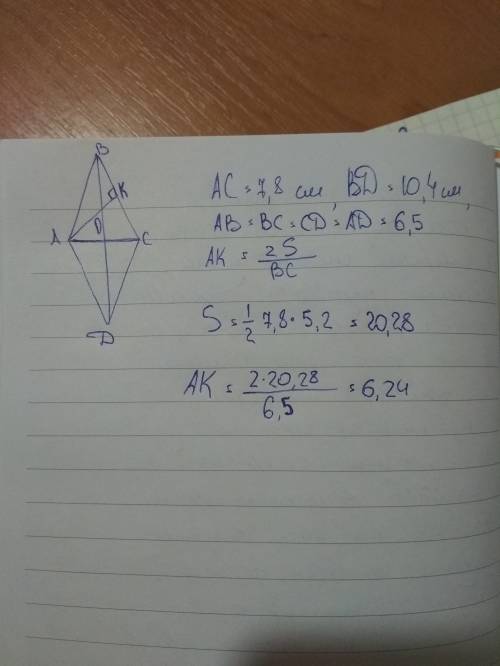 B
K
A O C
D
AC = 7,8 см, BD = 10,4 см,
AB = BC = CD = AD = 6,5
AK = 2S / BC
S = 1/2 7,8 · 5,2 = 20,28
AK = 2·20,28 / 6,5 = 6,24